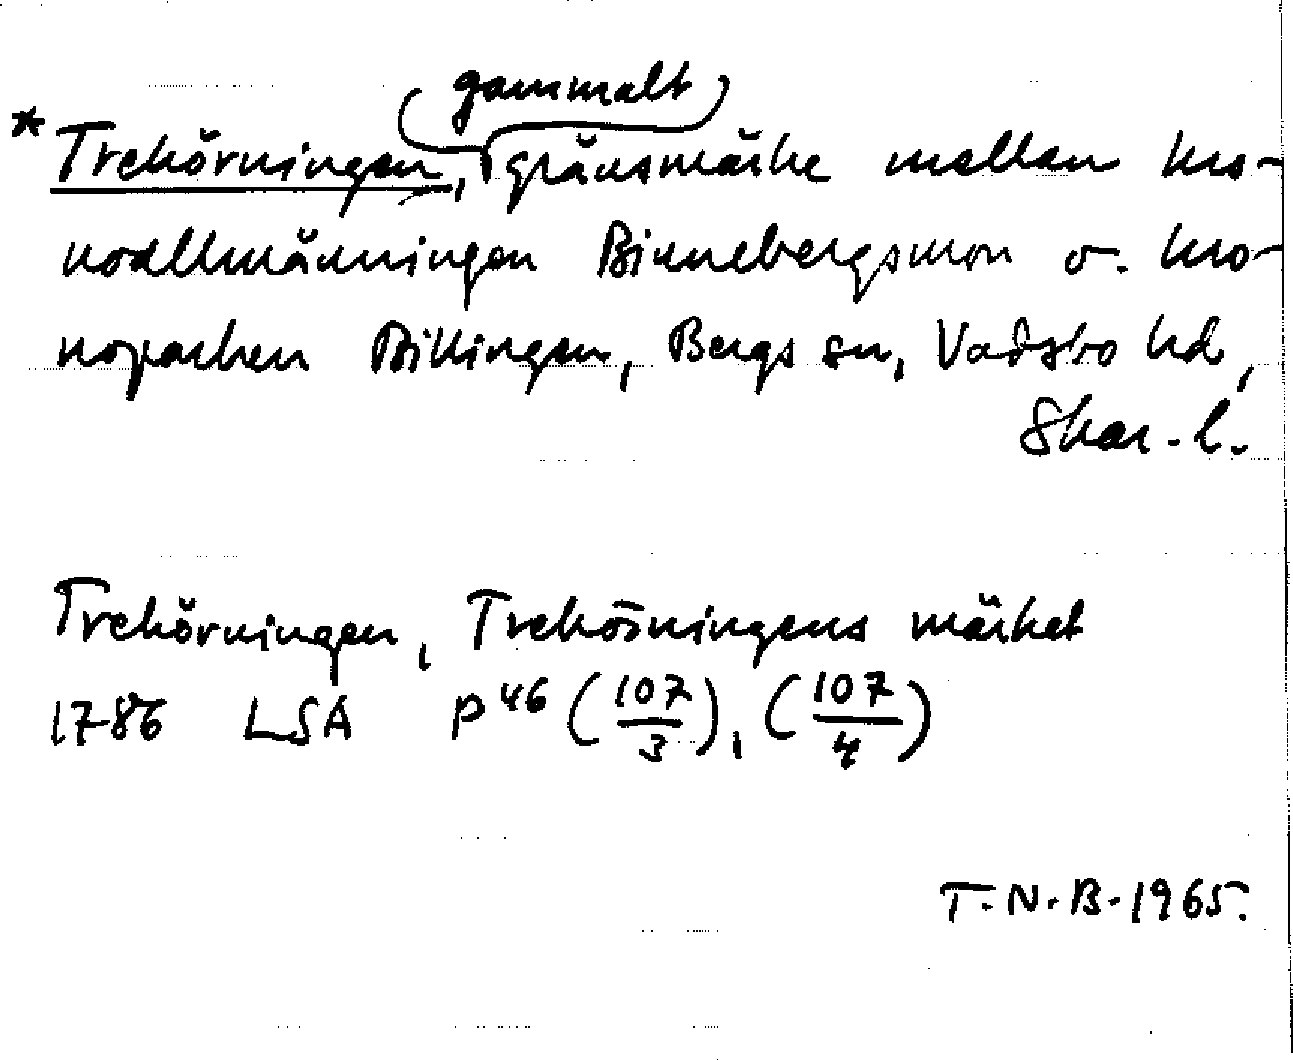 gammalt
*Trehörningen, gränsmärke mellan kro-
noallmänningen Binnebergsmon o. kro-
noparken Billingen, Bergs sn, Vadsbo hd,
Skar. l.
Trehörningen, Trehörningens märket
1786 LSA P46 (107/3), (107/4)
T. N. B. 1965.